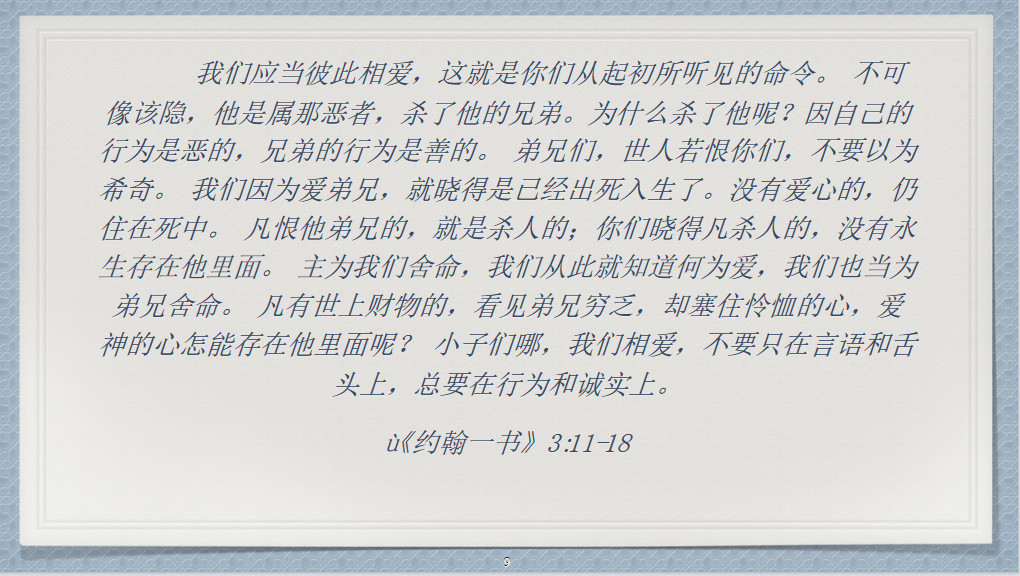 我们应当彼此相爱，这就是你们从起初所听见的命令。 不可
像该隐，他是属那恶者，杀了他的兄弟。为什么杀了他呢？因自己的
行为是恶的，兄弟的行为是善的。 弟兄们，世人若恨你们，不要以为
希奇。 我们因为爱弟兄，就晓得是已经出死入生了。没有爱心的，仍
住在死中。 凡恨他弟兄的，就是杀人的；你们晓得凡杀人的，没有永
生存在他里面。 主为我们舍命，我们从此就知道何为爱，我们也当为
弟兄舍命。 凡有世上财物的，看见弟兄穷乏，却塞住怜恤的心，爱
神的心怎能存在他里面呢？ 小子们哪，我们相爱，不要只在言语和舌
头上，总要在行为和诚实上。
ù《约翰一书》3:11-18
9